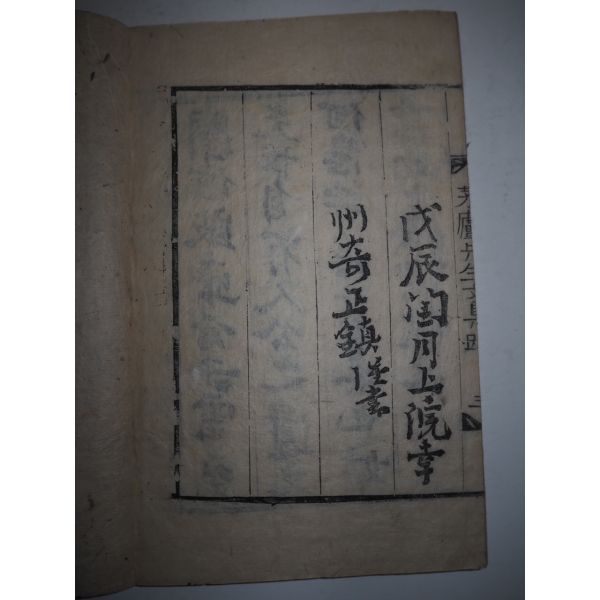 廬先生文集跋 三
戊辰閏月上浣幸
州奇正鎭謹書